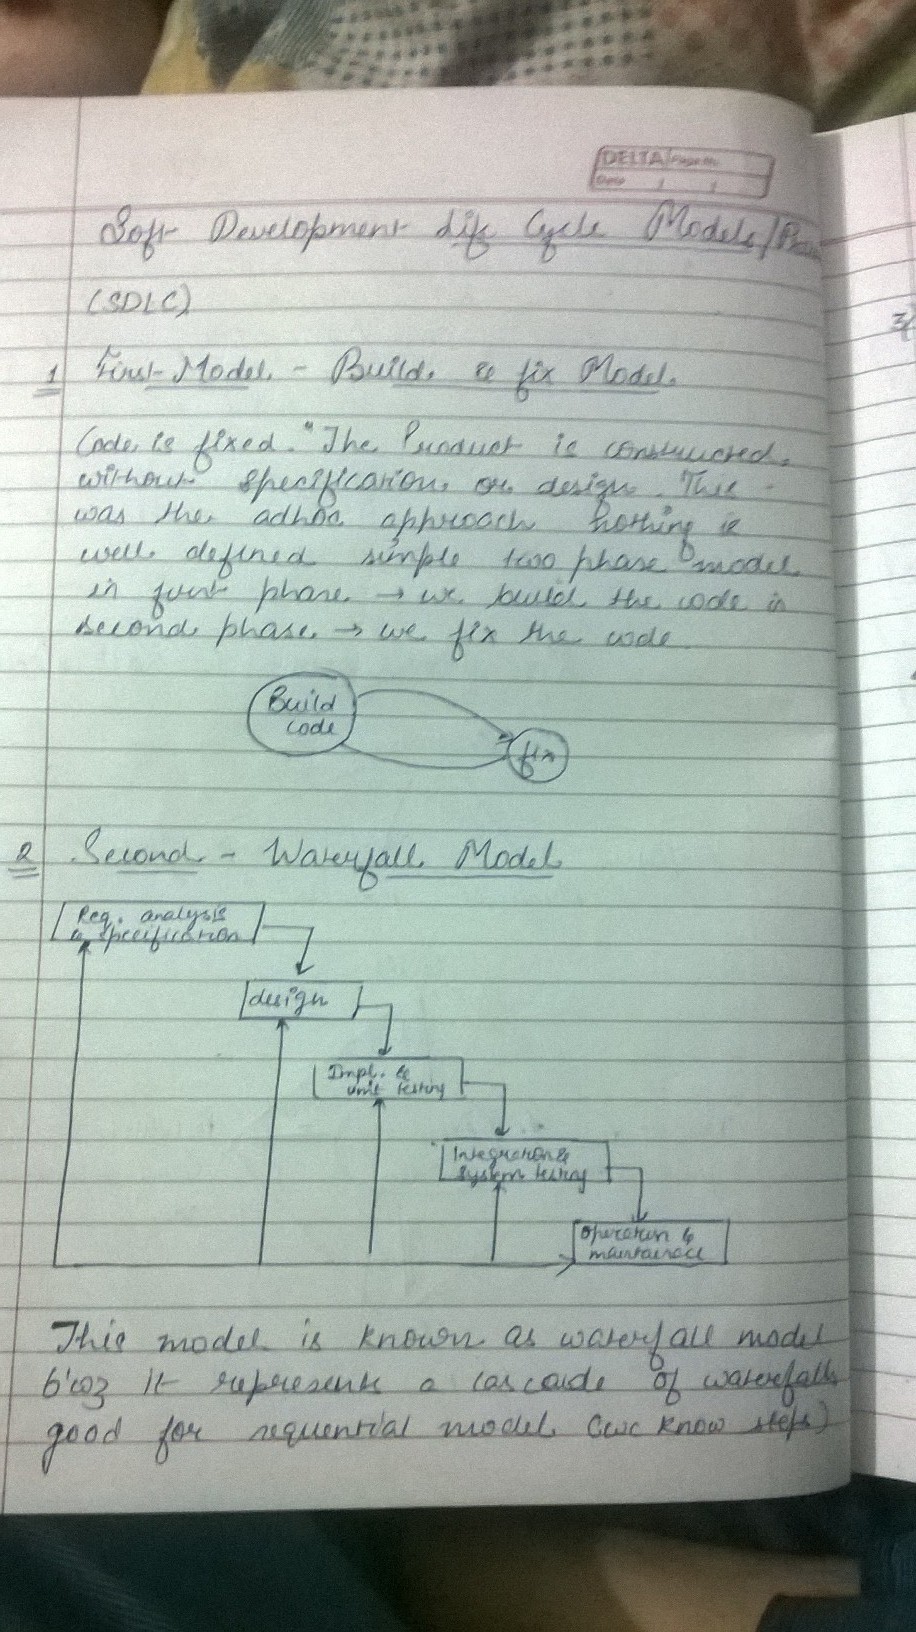 DELTA Page No.
Date / /
Soft Development Life Cycle Models/
(SDLC)
1 First Model - Build & fix Model.
Code is fixed. "The Product is constructed
without specification or design. This
was the adhoc approach Nothing is
well defined simple two phase model
in first phase → we build the code in
second phase → we fix the code
Build
code
fix
2 Second - Waterfall Model
Req. analysis
& specification
design
Impl. &
unit testing
Integration &
system testing
Operation &
maintainace
This model is known as waterfall model
b'coz it represents a cascade of waterfalls
good for sequential model (we know steps)
3